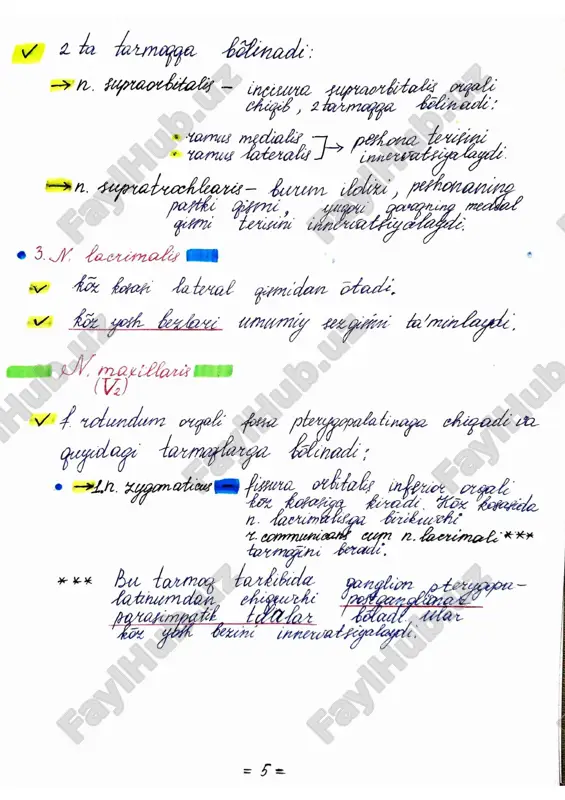 2 ta tarmoqqa bõlinadi:
→ n. supraorbitalis – incisura supraorbitalis orqali
chiqib, 2 tarmoqqa bõlinadi:
• ramus medialis
• ramus lateralis → peshona terisini
innervatsiyalaydi.
→ n. supratrochlearis – burun ildizi, peshonaning
pastki qismi, yuqori qovoqning medial
qismi terisini innervatsiyalaydi.
• 3. N. lacrimalis
kõz kosasi lateral qismidan õtadi.
kõz yosh bezlari umumiy sezgisini ta'minlaydi.
N. maxillaris
(V2)
f. rotundum orqali fossa pterygopalatinaga chiqadi va
quyidagi tarmoqlarga bõlinadi:
• → 1. n. zygomaticus – fissura orbitalis inferior orqali
kõz kosasiga kiradi. Kõz kosasida
n. lacrimalisga birikuvchi
r. communicans cum n. lacrimali ***
tarmoğini beradi.
*** Bu tarmoq tarkibida ganglion pterygopa-
latinumdan chiquvchi postganglionar
parasimpatik tolalar bõladi. Ular
kõz yosh bezini innervatsiyalaydi.
= 5 =
FaylHub.uz